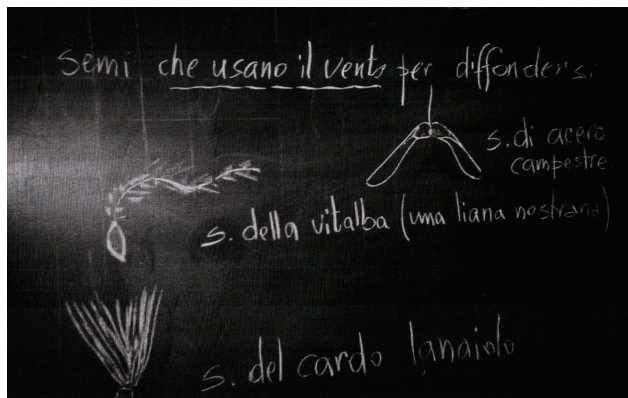 semi che usano il vento per diffondersi
s. di acero
campestre
s. della vitalba (una liana nostrana)
s. del cardo lanaiolo